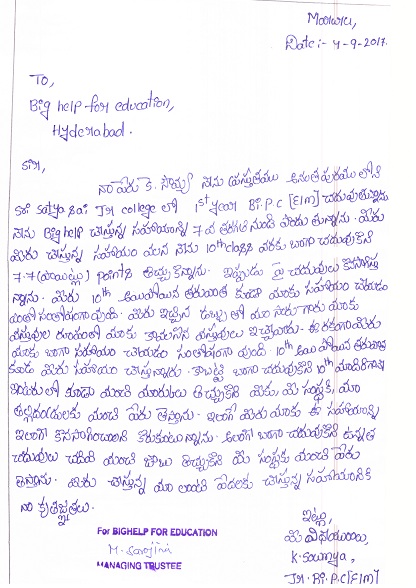 Date:- 4-9-2017.
To,
Big help for education,
Hyderabad.
Sir,
నా పేరు కె. సౌమ్య నేను ప్రస్తుతము అనంతపురములోని
Sri Satya Sai Jr college లో 1st year Bi.P.C [E/m] చదువుతున్నాను
నేను Big help చేస్తున్న సహాయాన్ని 7వ తరగతి నుండి పొందుతున్నాను. మీరు
మీరు చేస్తున్న సహాయం వలన నేను 10th class వరకు బాగా చదువుకొని
7.7 (పాయింట్లు) points తెచ్చుకున్నాను. ఇప్పుడు పై చదువులు
న్నాను. మీరు 10th అయిపోయిన తరువాత కూడా మాకు సహాయం చేయడం
ఎంతో సంతోషంగా వుంది. మీరు ఇచ్చిన డబ్బు తో మా సారు గారు మాకు
వస్తువుల రూపంలో మాకు కావలసిన వస్తువులు ఇచ్చినారు. ఈ రకంగా మీరు
మాకు బాగా సహాయం చేయడం సంతోషంగా వుంది 10th అయిపోయిన తరువాత
కూడా మీరు సహాయం చేస్తున్నారు. కాబట్టి బాగా చదువుకొని 10th
ఇంటరులో కూడా మంచి మార్కులు తెచ్చుకొని మీకు, మీ సంస్థకి, మా
తల్లిదండ్రులకు మంచి పేరు తెస్తాను. ఇలాగే మీరు మాకు ఈ సహాయాన్ని
ఇలాగే కొనసాగించాలని కోరుకుంటున్నాను. అలాగే బాగా చదువుకొని ఉన్నత
చదువులు చదివి మంచి జాబు తెచ్చుకొని మీ సంస్థకు మంచి పేరు
తెస్తాను. మీరు చేస్తున్న మా లాంటి పేదలకు చేస్తున్న సహాయానికి
నా కృతజ్ఞతలు.
ఇట్లు,
మీ విధేయురాలు,
K. Soumya,
Jr. Bi.P.C [E/m]
For BIGHELP FOR EDUCATION
M. Sarojini
MANAGING TRUSTEE